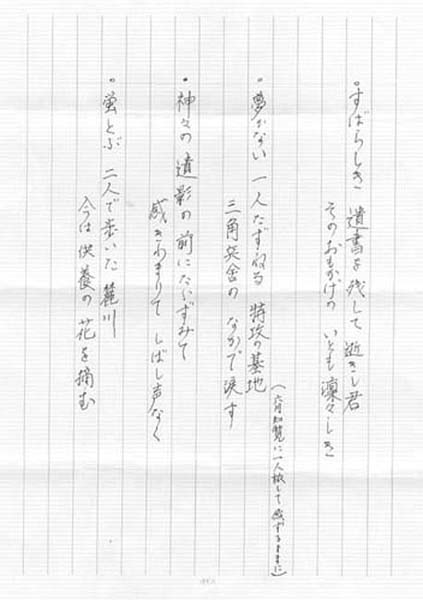 ・すばらしき 遺書を残して 逝きし君
そのおもかげの いとも凛々しき
(六月知覧に一人旅して 感ずるままに)
・夢かない 一人たずねる 特攻の基地
三角兵舎の なかで涙す
・神々の 遺影の前にたゝずみて
感きわまりて しばし声なく
・蛍とぶ 二人で歩いた 麓川
今は供養の 花を摘む